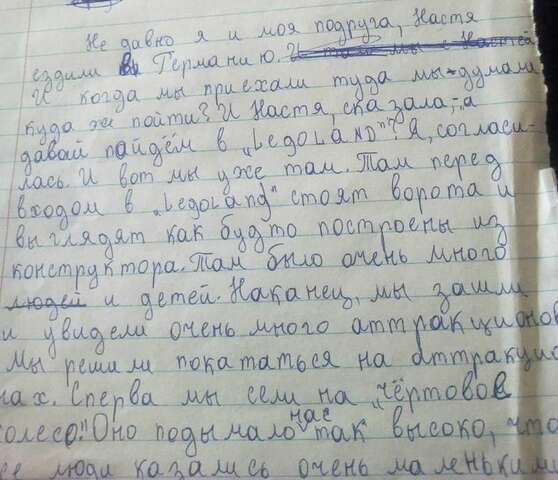 Не давно я и моя подруга, Настя
ездили в Германию. И там мы с Настей
И когда мы приехали туда мы думали
куда же пойти? И Настя, сказала,-а
давай пойдём в „LegoLAND"? Я, согласи-
лась. И вот мы уже там. Там перед
входом в „Legoland" стоят ворота и
выглядят как будто построены из
конструктора. Там было очень много
людей и детей. Наканец, мы зашли
и увидели очень много аттракционов
Мы решили покататься на аттракцио
нах. Сперва мы сели на „чёртовое
колесо". Оно подымало нас так высоко, что
се люди казались очень маленькими